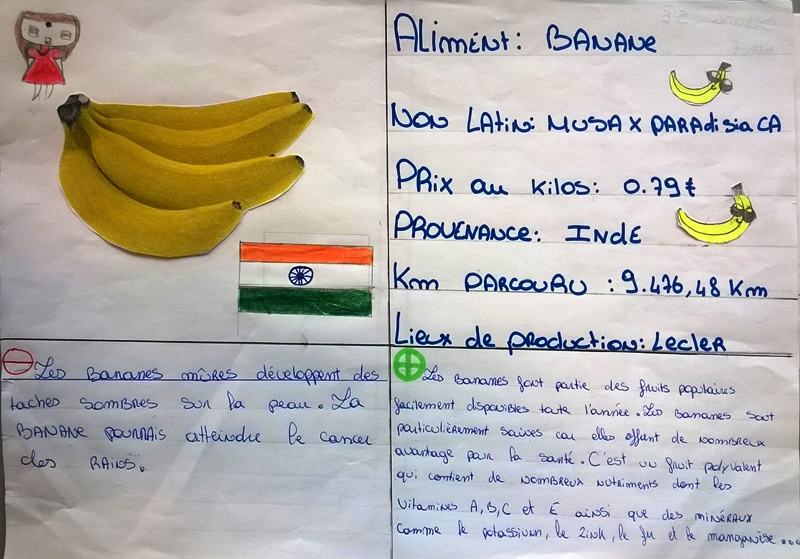 Aliment: BANANE
NON LAtiN: MUSA X PARAdisiaCA
PRix au kilos: 0.79€
PROVENANCE: INdE
Km PARCOURU : 9.476,48 Km
Lieux de production: Lecler
Les Bananes mûres développent des
taches sombres sur la peau. La
BANANE POURRAIS atteindre le cancer
des RAINS.
Les Bananes font partie des fruits populaires
facilement disponibles toute l'année. Les Bananes sont
particulièrement saines car elles offrent de NOMBREUX
avantage pour la santé. C'est un fruit polyvalent
qui contient de NOMBREUX Nutriments dont les
Vitamines A, B, C et E ainsi que des MINÉRAUX
comme le potassium, le zink, le fer et le manganèse...